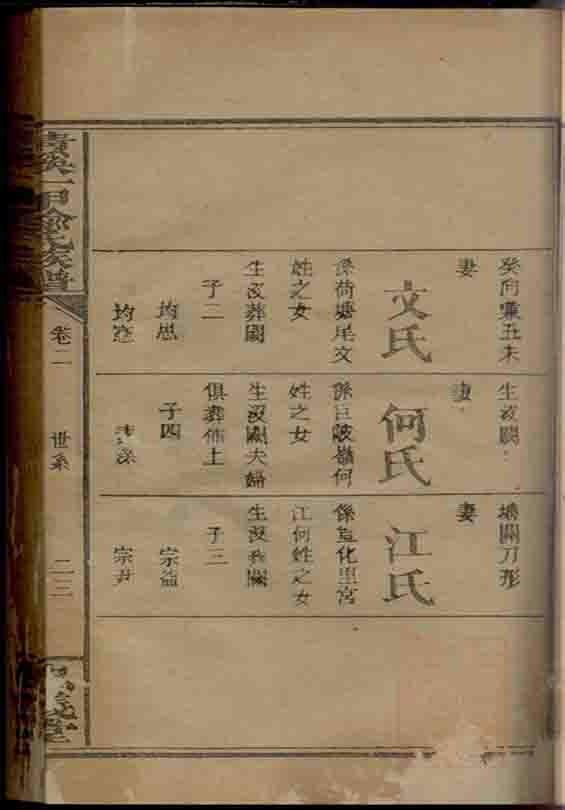 癸向兼丑未
妻
文氏
係荷塘尾文
姓之女
生没葬闕
子二
均思
均
生没闕
妻
何氏
係巨陂嶺何
姓之女
生没闕夫婦
俱葬佈上
子四
塘關刀形
妻
江氏
係造化里宮
江何姓之女
生没葬闕
子三
宗益
宗尹
一甲 氏家譜
卷二
世系
二二
堂